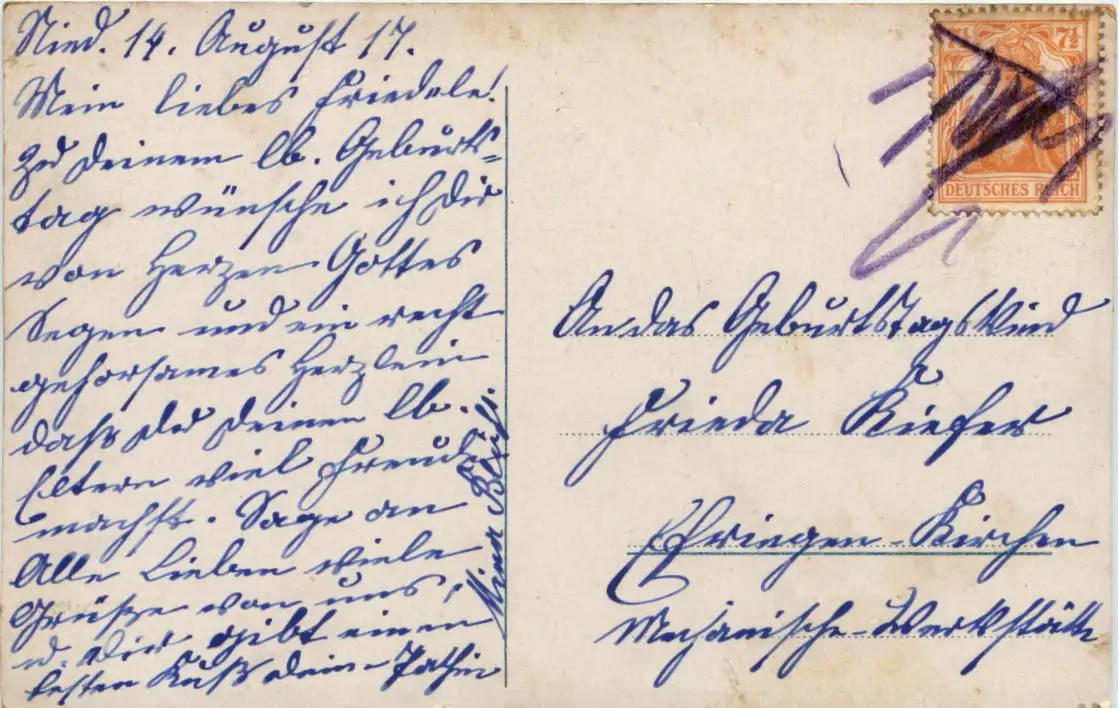 Ried. 14. August 17.
Mein liebes Friedele!
Zu Deinem lb. Geburts-
tag wünsche ich Dir
von Herzen Gottes
Segen und ein recht
gehorsames Herzlein
daß Du Deinen lb.
Eltern viel Freude
machst. Sage an
Alle Lieben viele
Grüße von uns,
u. Dir gibt einen
festen Kuß deine Pathin
Mina
7½
DEUTSCHES REICH
An das Geburtstagskind
Frieda Kiefer
Efringen-Kirchen
Mechanische-Werkstätte